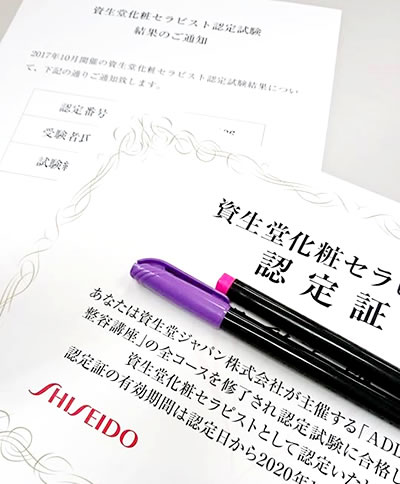 資生堂化粧セラピスト認定試験
結果のご通知
2017年10月開催の資生堂化粧セラピスト認定試験結果につい
て、下記の通りご通知致します。
認定番号
受験者
試験
資生堂化粧セラピ
認定証
あなたは資生堂ジャパン株式会社が主催する「ADD
整容講座」の全コースを修了され認定試験に合格し
資生堂化粧セラピストとして認定いた
認定証の有効期間は認定日から2020年
SHISEIDO